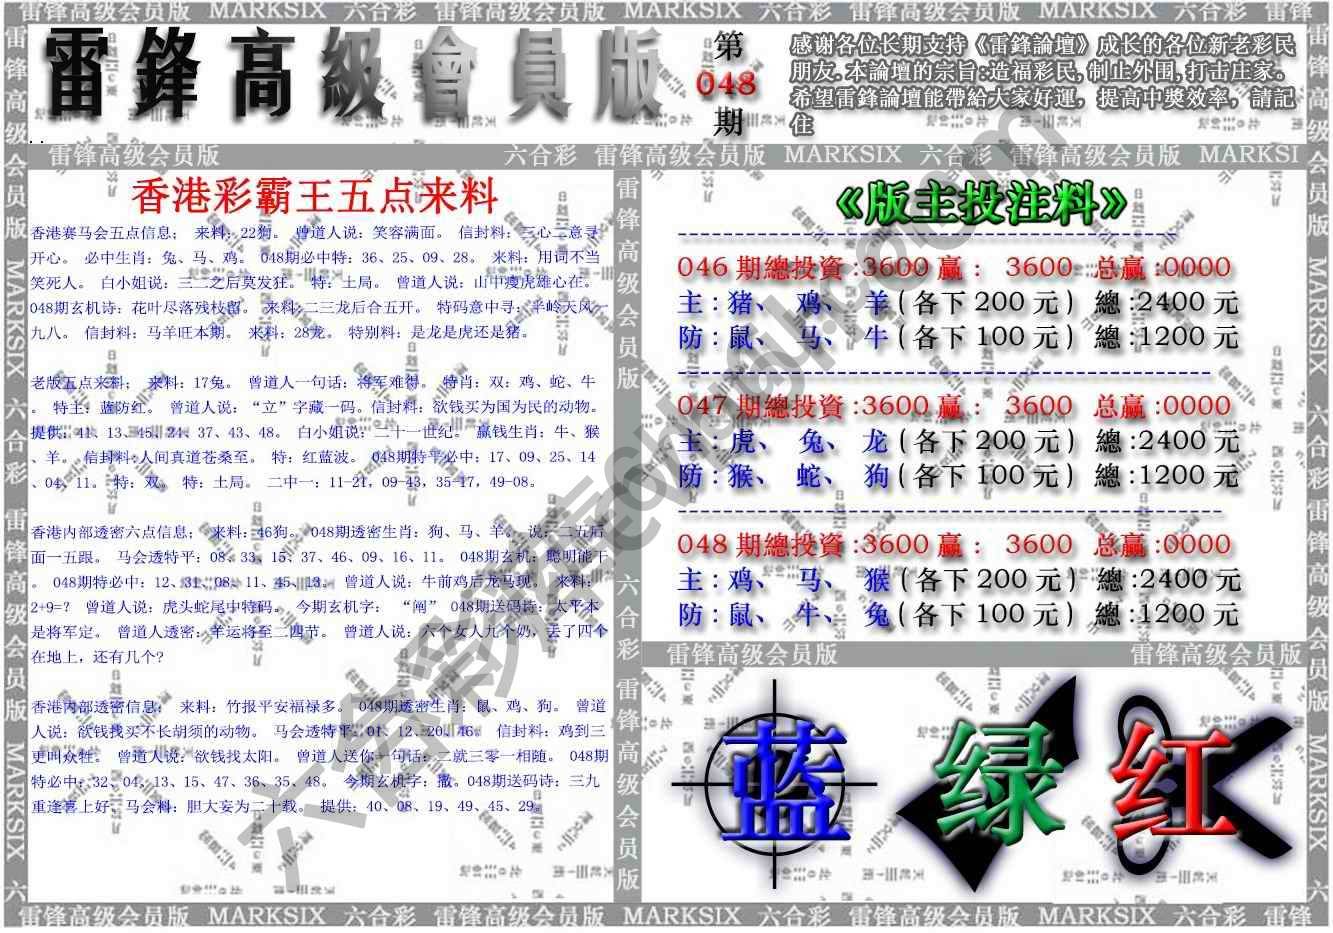 雷锋高级会员版 MARKSIX 六合彩 雷锋高级会员版 MARKSIX 六合彩 雷锋高级会员版 MARKSIX 六合彩 雷锋
雷鋒高級會員版
第
048
期
感谢各位长期支持《雷鋒論壇》成长的各位新老彩民
朋友.本論壇的宗旨:造福彩民,制止外围,打击庄家。
希望雷鋒論壇能帶給大家好運，提高中獎效率，請記
住
雷锋高级会员版 六合彩 雷锋高级会员版 MARKSIX 六合彩 雷锋高级会员版 MARKSI
香港彩霸王五点来料
香港赛马会五点信息； 来料：22狗。 曾道人说：笑容满面。 信封料：三心二意寻
开心。 必中生肖：兔、马、鸡。 048期必中特：36、25、09、28。 来料：用词不当
笑死人。 白小姐说：三二之后莫发狂。 特：土局。 曾道人说：山中瘦虎雄心在。
048期玄机诗：花叶尽落残枝留。 来料:二三龙后合五开。 特码意中寻：半岭天风一
九八。 信封料：马羊旺本期。 来料：28龙。 特别料：是龙是虎还是猪。
老版五点来料； 来料：17兔。 曾道人一句话：将军难得。 特肖：双：鸡、蛇、牛
。 特主：蓝防红。 曾道人说：“立”字藏一码。信封料：欲钱买为国为民的动物。
提供：41、13、45、24、37、43、48。 白小姐说：二十一世纪。 赢钱生肖：牛、猴
、羊。 信封料:人间真道苍桑至。 特：红蓝波。 048期特平必中：17、09、25、14
、04、11。 特：双。 特：土局。 二中一：11-21，09-43，35-17，49-08。
香港内部透密六点信息； 来料：46狗。 048期透密生肖：狗、马、羊。 说：二五后
面一五跟。 马会透特平：08、33、15、37、46、09、16、11。 048期玄机：聪明能干
。 048期特必中：12、31、08、11、45、13。 曾道人说：牛前鸡后龙马现。 来料：
2+9=？ 曾道人说：虎头蛇尾中特码。 今期玄机字： “阐” 048期送码诗：太平本
是将军定。 曾道人透密：羊运将至二四节。 曾道人说：六个女人九个奶，丢了四个
在地上，还有几个?
香港内部透密信息； 来料：竹报平安福禄多。 048期透密生肖：鼠、鸡、狗。 曾道
人说：欲钱找买不长胡须的动物。 马会透特平：01、12、20、46。 信封料：鸡到三
更叫众牲。 曾道人说：欲钱找太阳。 曾道人送你一句话：二就三零一相随。 048期
特必中：32、04、13、15、47、36、35、48。 今期玄机字：撤。048期送码诗：三九
重逢喜上好、马会料：胆大妄为二十载。 提供：40、08、19、49、45、29。
《版主投注料》
046 期總投資:3600 赢： 3600 总赢:0000
主:猪、 鸡、 羊(各下 200 元) 總:2400 元
防:鼠、 马、 牛(各下 100 元) 總:1200 元
047 期總投資:3600 赢： 3600 总赢:0000
主:虎、 兔、 龙(各下 200 元) 總:2400 元
防:猴、 蛇、 狗(各下 100 元) 總:1200 元
048 期總投資:3600 赢： 3600 总赢:0000
主:鸡、 马、 猴(各下 200 元) 總:2400 元
防:鼠、 牛、 兔(各下 100 元) 總:1200 元
雷锋高级会员版 雷锋高级会员版
蓝 绿 红
雷锋高级会员版 MARKSIX 六合彩 雷锋高级会员版 MARKSIX 六合彩 雷锋高级会员版 MARKSIX 六合彩 雷锋
雷锋高级会员版 MARKSIX 六合彩 雷锋高级会员版 MARKSIX 六
雷锋高级会员版 六合彩 雷锋高级会员版